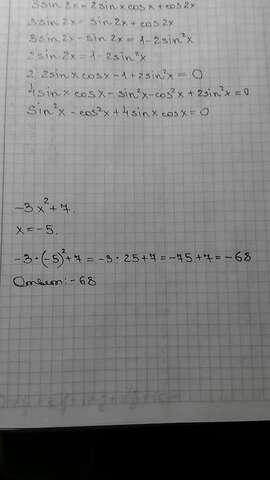 3sin2x = 2sinxcosx + cos2x
3sin2x = sin2x + cos2x
3sin2x - sin2x = 1 - 2sin²x
2sin2x = 1 - 2sin²x
2 · 2sinx cosx - 1 + 2sin²x = 0
4sinx cosx - sin²x - cos²x + 2sin²x = 0
sin²x - cos²x + 4sinx cosx = 0
-3x² + 7.
x = -5.
-3 · (-5)² + 7 = -3 · 25 + 7 = -75 + 7 = -68
Ответ: -68